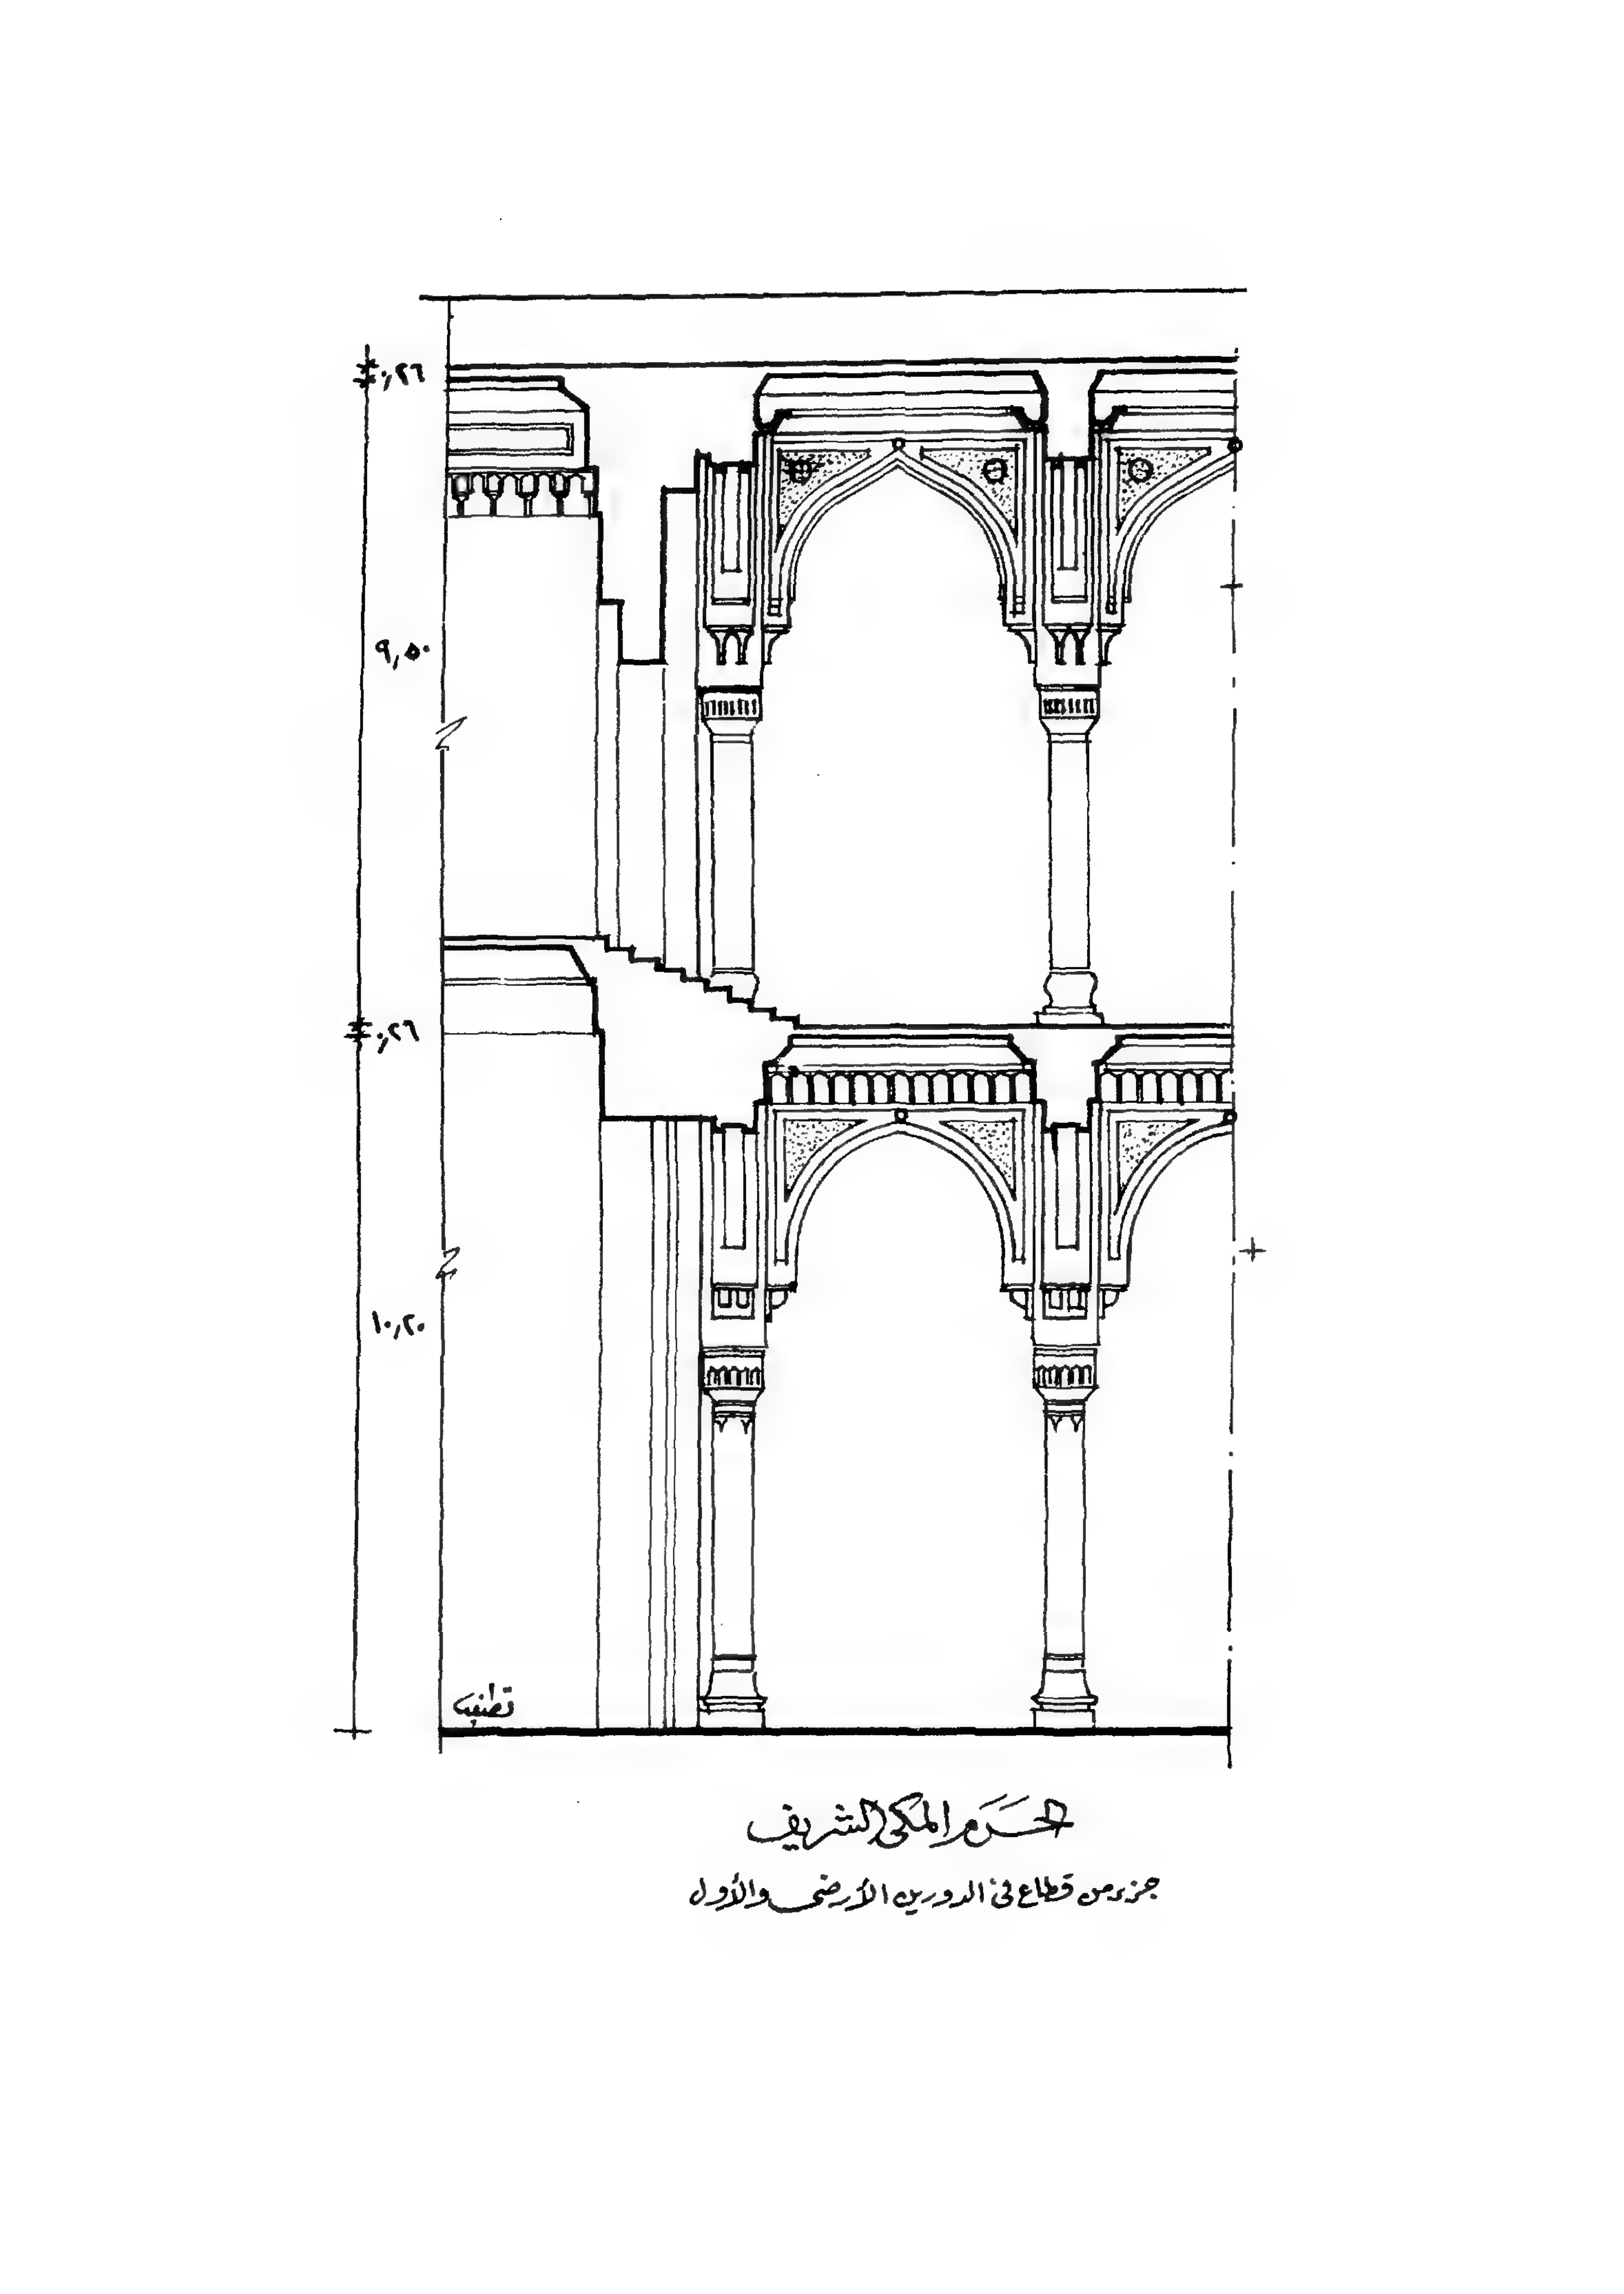 ٠,٢٦
٩,٥٠
٠,٢٦
١٠,٢٠
الحَرَم المكي الشريف
جزء من قطاع في الدورين الأرضي والأول